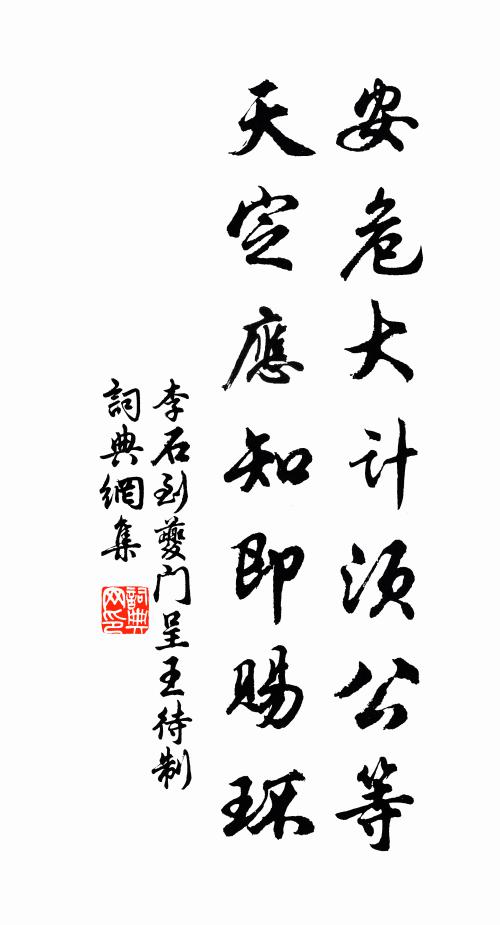 安危大计须公等
天定應知即賜环
李石到夔门呈王待制
詞典網集
詞典
网印